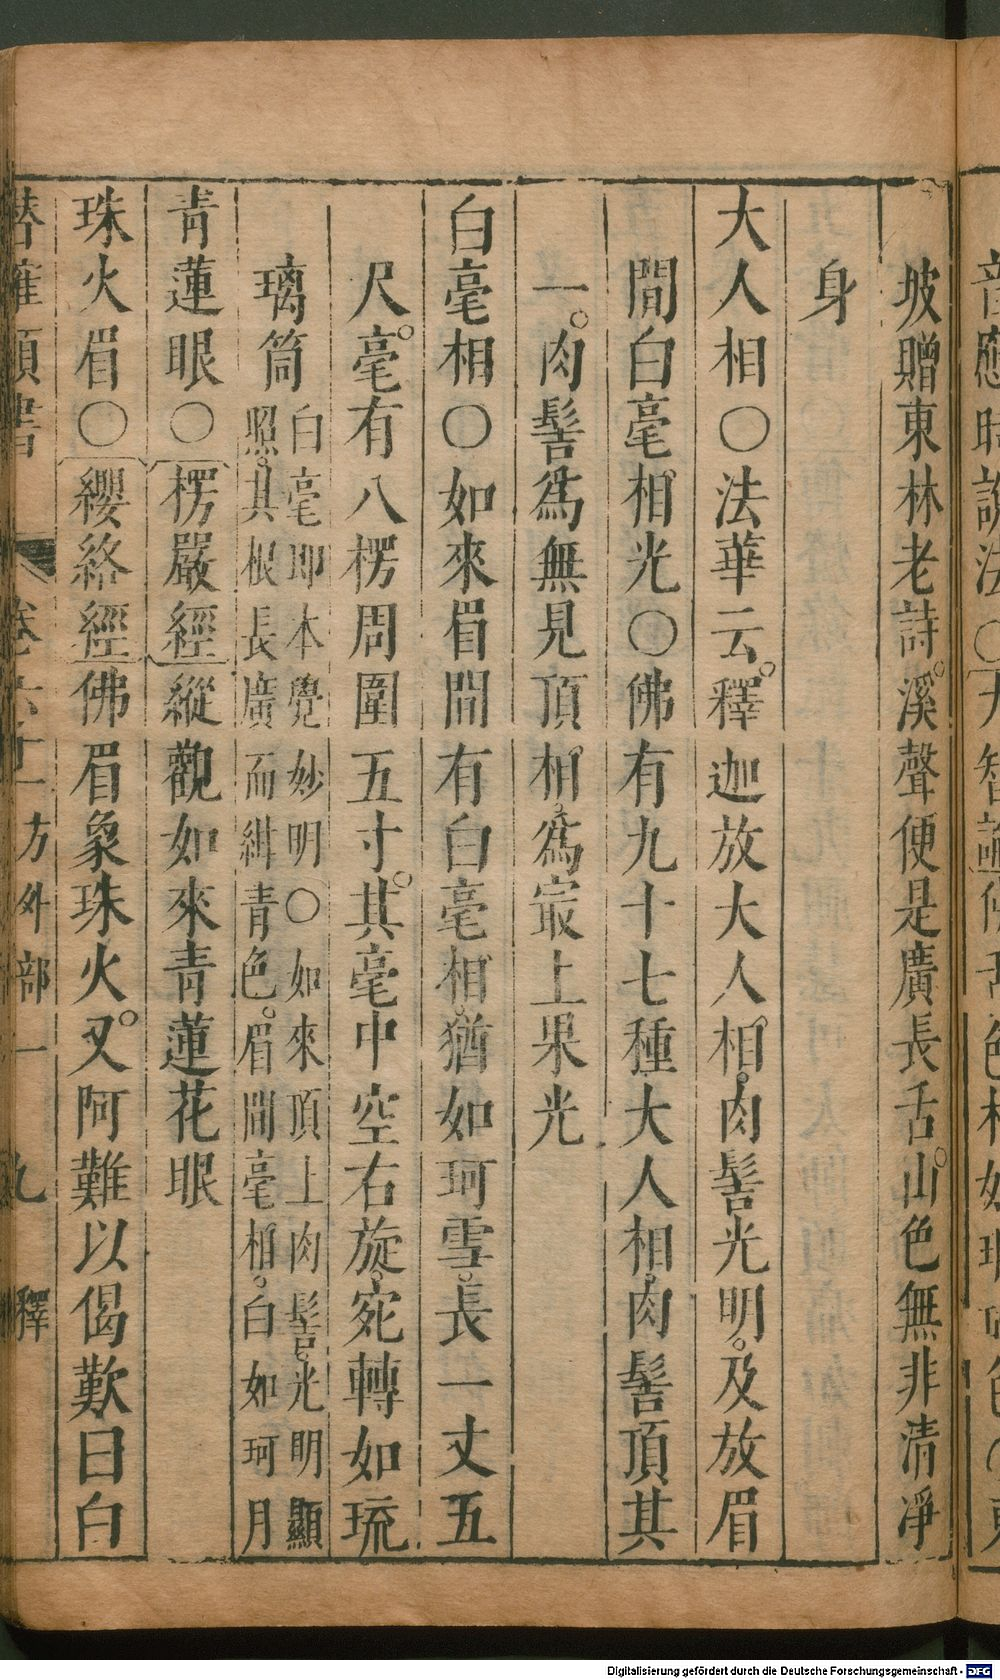 坡贈東林老詩。溪聲便是廣長舌。山色無非清凈
身
大人相○法華云。釋迦放大人相。肉髻光明。及放眉
間白毫相光○佛有九十七種大人相。肉髻頂其
一。肉髻爲無見頂相。爲最上果光
白毫相○如來眉間有白毫相。猶如珂雪。長一丈五
尺。毫有八楞周圍五寸。其毫中空右旋。宛轉如琉
璃筒
白毫即本覺妙明○如來頂上肉髻。光明顯
照。其根長廣而紺青色。眉間毫相。白如珂月
青蓮眼○楞嚴經縱觀如來青蓮花眼
珠火眉○纓絡經佛眉象珠火。又阿難以偈歎曰白
潛確類書 卷六十一方外部一 九 釋
Digitalisierung gefördert durch die Deutsche Forschungsgemeinschaft - DFG